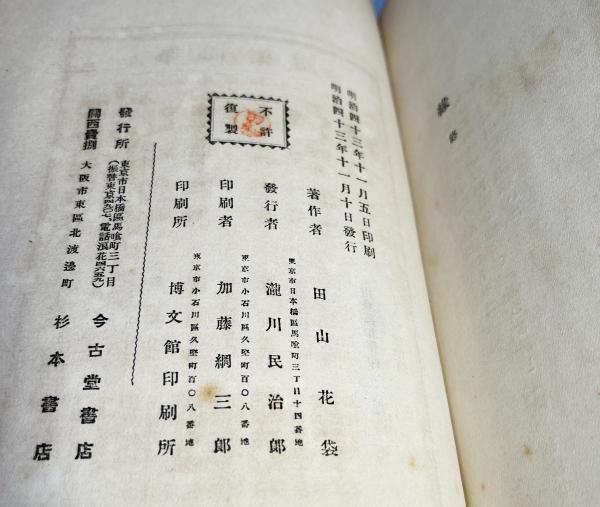 緣
終
明治四十三年十一月五日印刷
明治四十三年十一月十日發行
不許
復製
著作者 田山花袋
東京市日本橋區馬喰町三丁目十四番地
發行者 瀧川民治郎
東京市小石川區久堅町百〇八番地
印刷者 加藤綱三郎
東京市小石川區久堅町百〇八番地
印刷所 博文館印刷所
發行所 東京市日本橋區馬喰町三丁目
(振替東京四九〇七、電話浪花四六五九) 今古堂書店
關西賣捌 大阪市東區北渡邊町 杉本書店